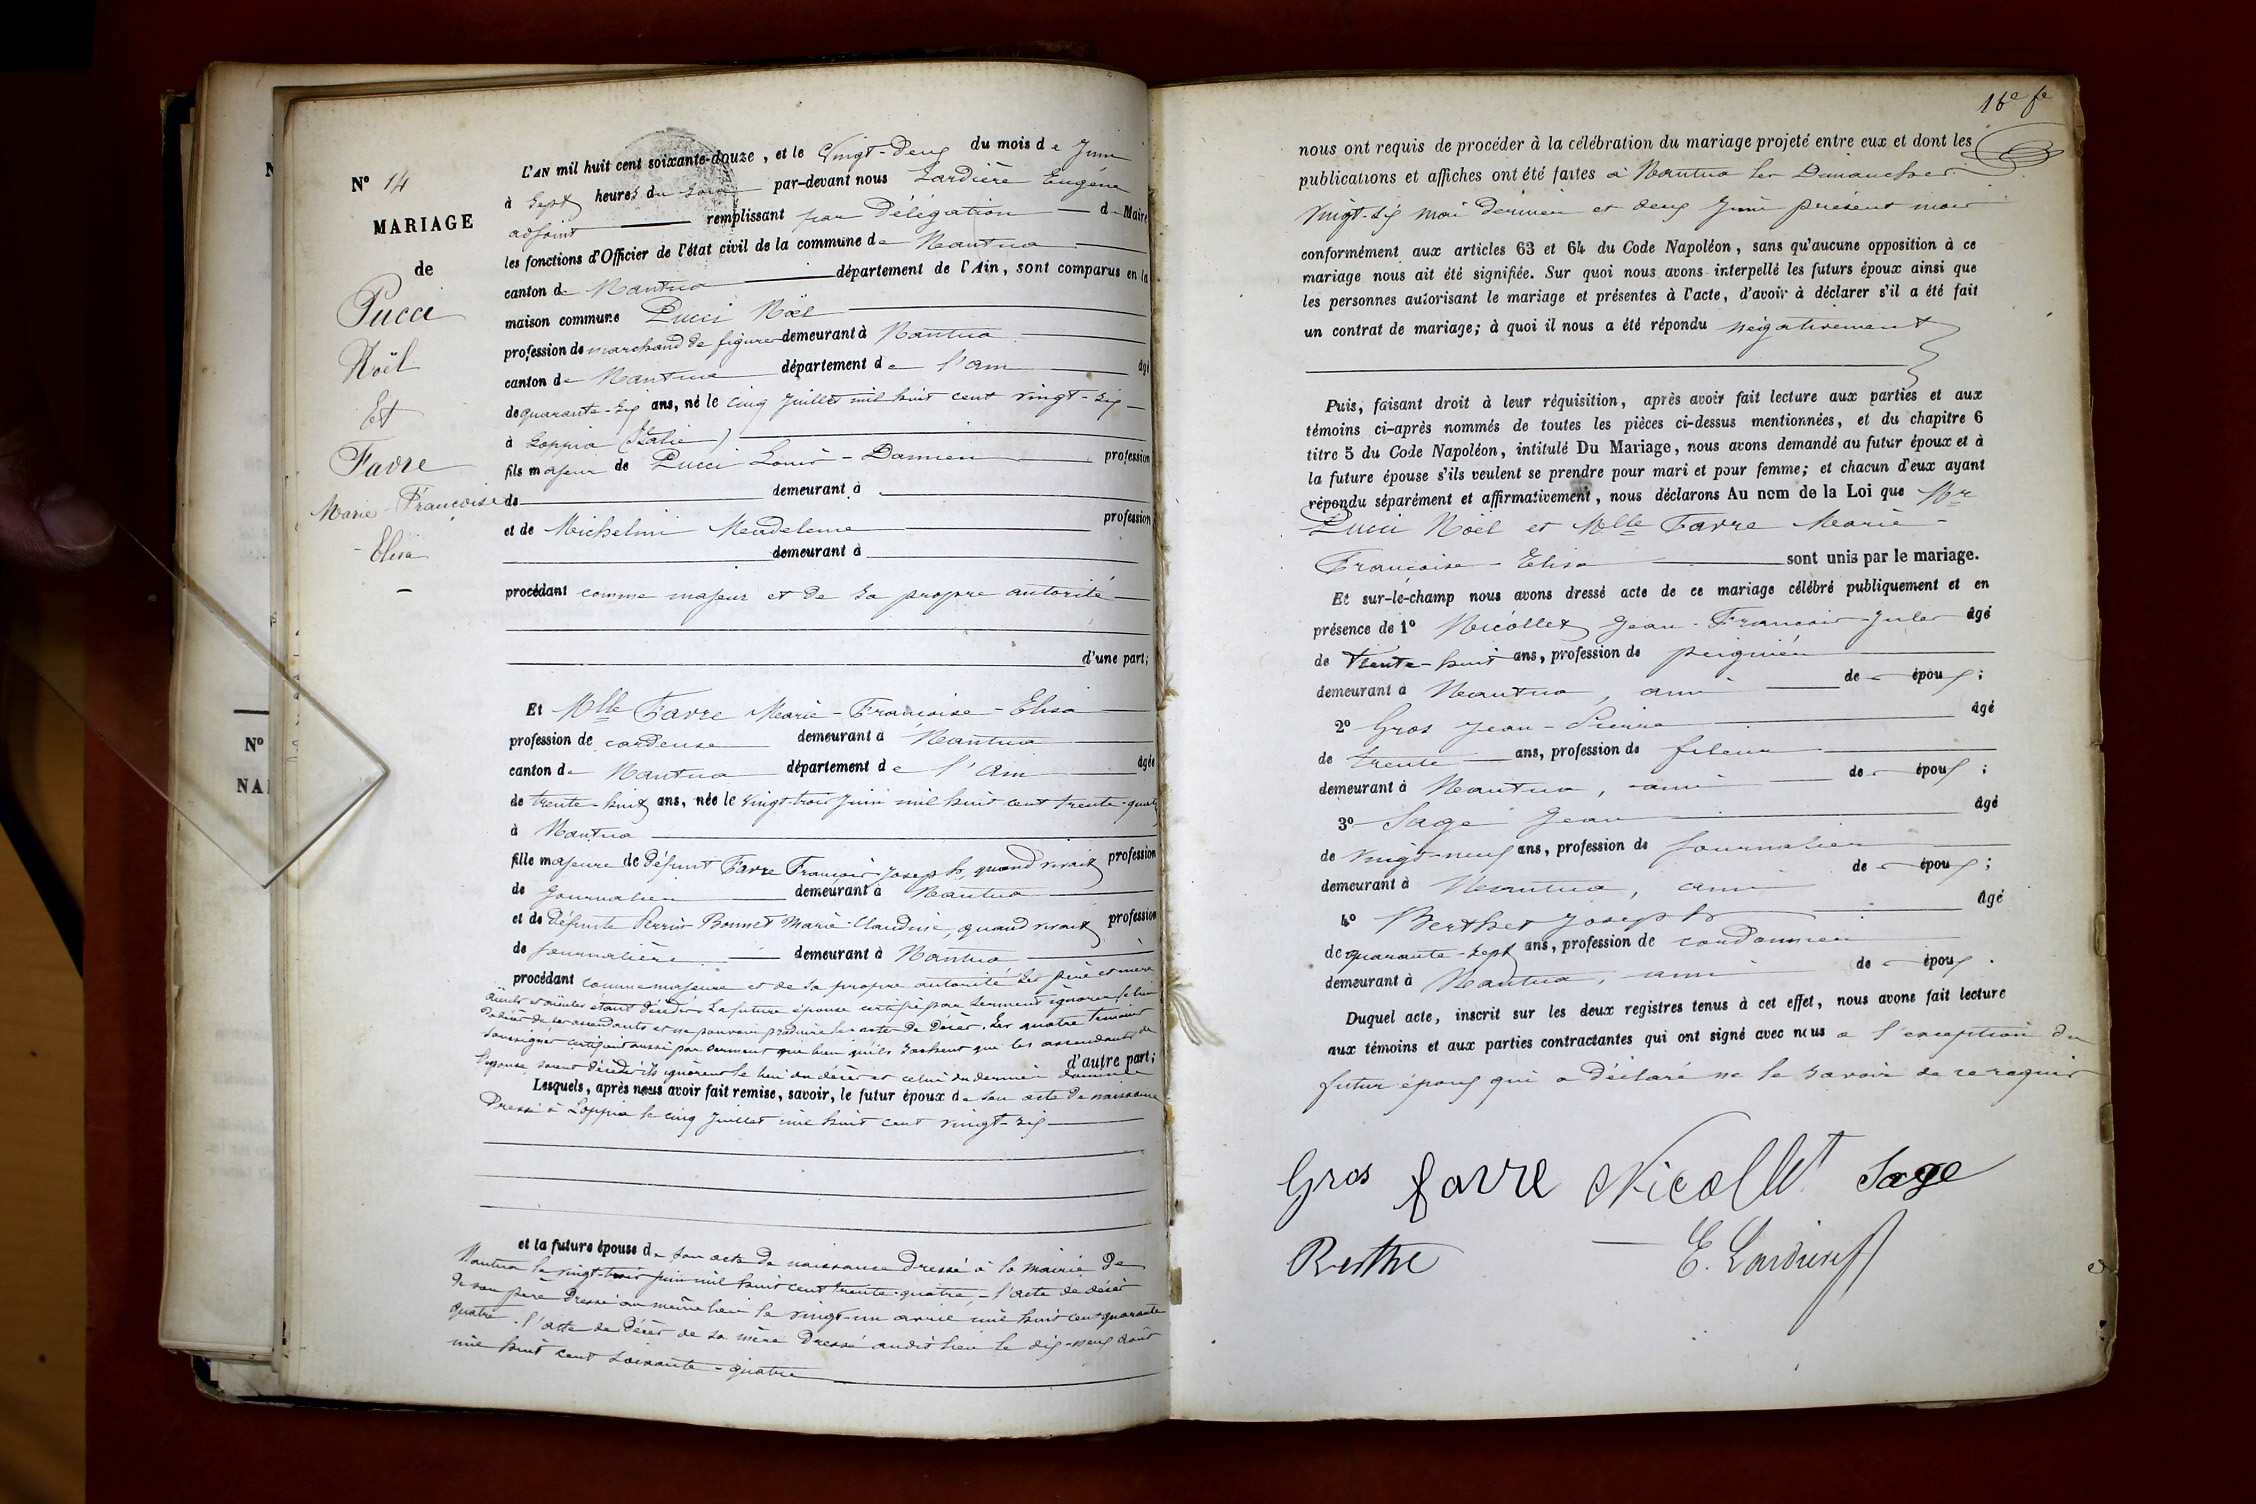 N° 14
MARIAGE
de
Pucci
Noël
Et
Favre
Marie-Françoise
Elisa
L'AN mil huit cent soixante-douze, et le Vingt-Deux du mois de Juin
à Sept heures du Soir par-devant nous Lardière Eugène
adjoint remplissant par Délégation d Maire
les fonctions d'Officier de l'état civil de la commune de Nantua
canton de Nantua département de l'Ain, sont comparus en la
maison commune Pucci Noël
profession de marchand de figures demeurant à Nantua
canton de Nantua département de l'ain âgé
de quarante-six ans, né le cinq Juillet mil huit cent vingt-six
à Loppia (Italie)
fils majeur de Pucci Louis-Damien profession
de demeurant à
et de Michelini Madeleine profession
demeurant à
procédant comme majeur et de sa propre autorité
d'une part;
Et Mlle Favre Marie-Françoise-Elisa
profession de cardeuse demeurant à Nantua
canton de Nantua département de l'Ain âgée
de trente-huit ans, née le vingt-trois Juin mil huit cent trente-quatre
à Nantua
fille majeure de défunt Favre François Joseph, quand vivait profession
de Journalier demeurant à Nantua
et de défunte Perrin-Bonnet Marie-Claudine, quand vivait profession
de Journalière demeurant à Nantua
procédant comme majeure et de sa propre autorité Ses père et mère
aïeuls et aïeules étant Décédés La future épouse certifie par serment ignorer le lieu
De décès de ses ascendants et ne pouvoir produire les actes de Décès. Les quatre témoins
soussignés certifient aussi par serment que bien qu'ils sachent que les ascendants de
l'épouse soient Décédés ils ignorent le lieu du décès et celui du dernier domicile
d'autre part;
Lesquels, après nous avoir fait remise, savoir, le futur époux de son acte de naissance
Dressé à Loppia le cinq Juillet mil huit cent vingt-six
et la future épouse de son acte de naissance Dressé à la mairie de
Nantua le vingt-trois juin mil huit cent trente-quatre, l'acte de décès
de son père Dressé au même lieu le vingt-un avril mil huit cent quarante
quatre. l'acte de Décès de sa mère Dressé audit lieu le dix-neuf août
mil huit cent soixante-quatre
16e fe
nous ont requis de procéder à la célébration du mariage projeté entre eux et dont les
publications et affiches ont été faites à Nantua les Dimanches
vingt-six mai dernier et deux Juin présent mois
conformément aux articles 63 et 64 du Code Napoléon, sans qu'aucune opposition à ce
mariage nous ait été signifiée. Sur quoi nous avons interpellé les futurs époux ainsi que
les personnes autorisant le mariage et présentes à l'acte, d'avoir à déclarer s'il a été fait
un contrat de mariage; à quoi il nous a été répondu négativement
Puis, faisant droit à leur réquisition, après avoir fait lecture aux parties et aux
témoins ci-après nommés de toutes les pièces ci-dessus mentionnées, et du chapitre 6
titre 5 du Code Napoléon, intitulé Du Mariage, nous avons demandé au futur époux et à
la future épouse s'ils veulent se prendre pour mari et pour femme; et chacun d'eux ayant
répondu séparément et affirmativement, nous déclarons Au nom de la Loi que Mr
Pucci Noël et Mlle Favre Marie-
Françoise-Elisa sont unis par le mariage.
Et sur-le-champ nous avons dressé acte de ce mariage célébré publiquement et en
présence de 1° Nicollet Jean-François-Jules âgé
de trente-huit ans, profession de peignier
demeurant à Nantua, ami de époux;
2° Gros Jean-Pierre âgé
de trente ans, profession de fileur
demeurant à Nantua, ami de époux;
3° Sage Jean âgé
de vingt-neuf ans, profession de journalier
demeurant à Nantua, ami de époux;
4° Berthet Joseph âgé
de quarante-sept ans, profession de cordonnier
demeurant à Nantua, ami de époux.
Duquel acte, inscrit sur les deux registres tenus à cet effet, nous avons fait lecture
aux témoins et aux parties contractantes qui ont signé avec nous a l'exception du
futur époux qui a Déclaré ne le savoir de ce requis
Gros favre Nicollet Sage
E. Lardière